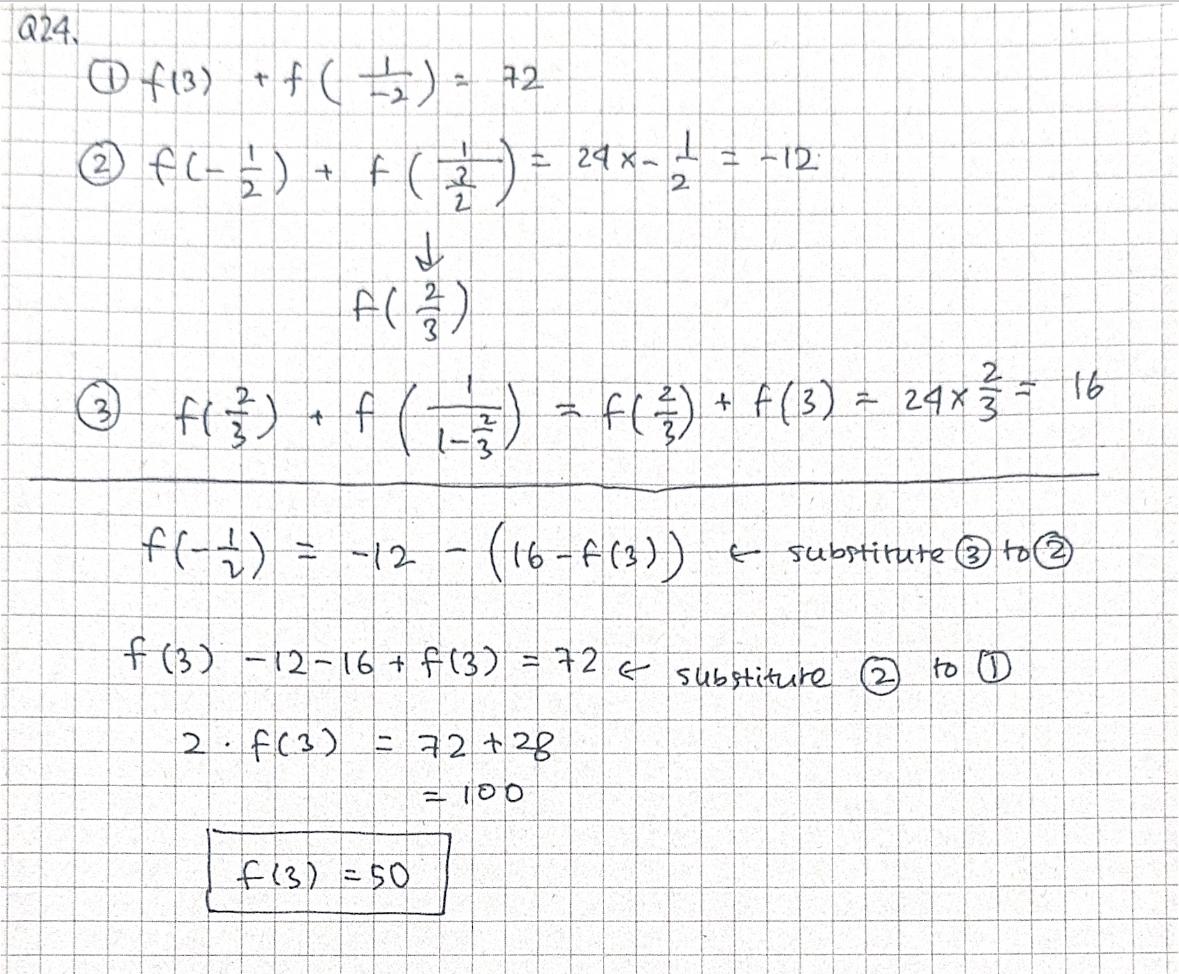 Q24.
① f(3) + f(1/-2) = 72
② f(-1/2) + f(1/(3/2)) = 24 x - 1/2 = -12
↓
f(2/3)
③ f(2/3) + f(1/(1-2/3)) = f(2/3) + f(3) = 24 x 2/3 = 16
f(-1/2) = -12 - (16 - f(3)) ← substitute ③ to ②
f(3) -12-16 + f(3) = 72 ← substitute ② to ①
2 · f(3) = 72 + 28
= 100
f(3) = 50